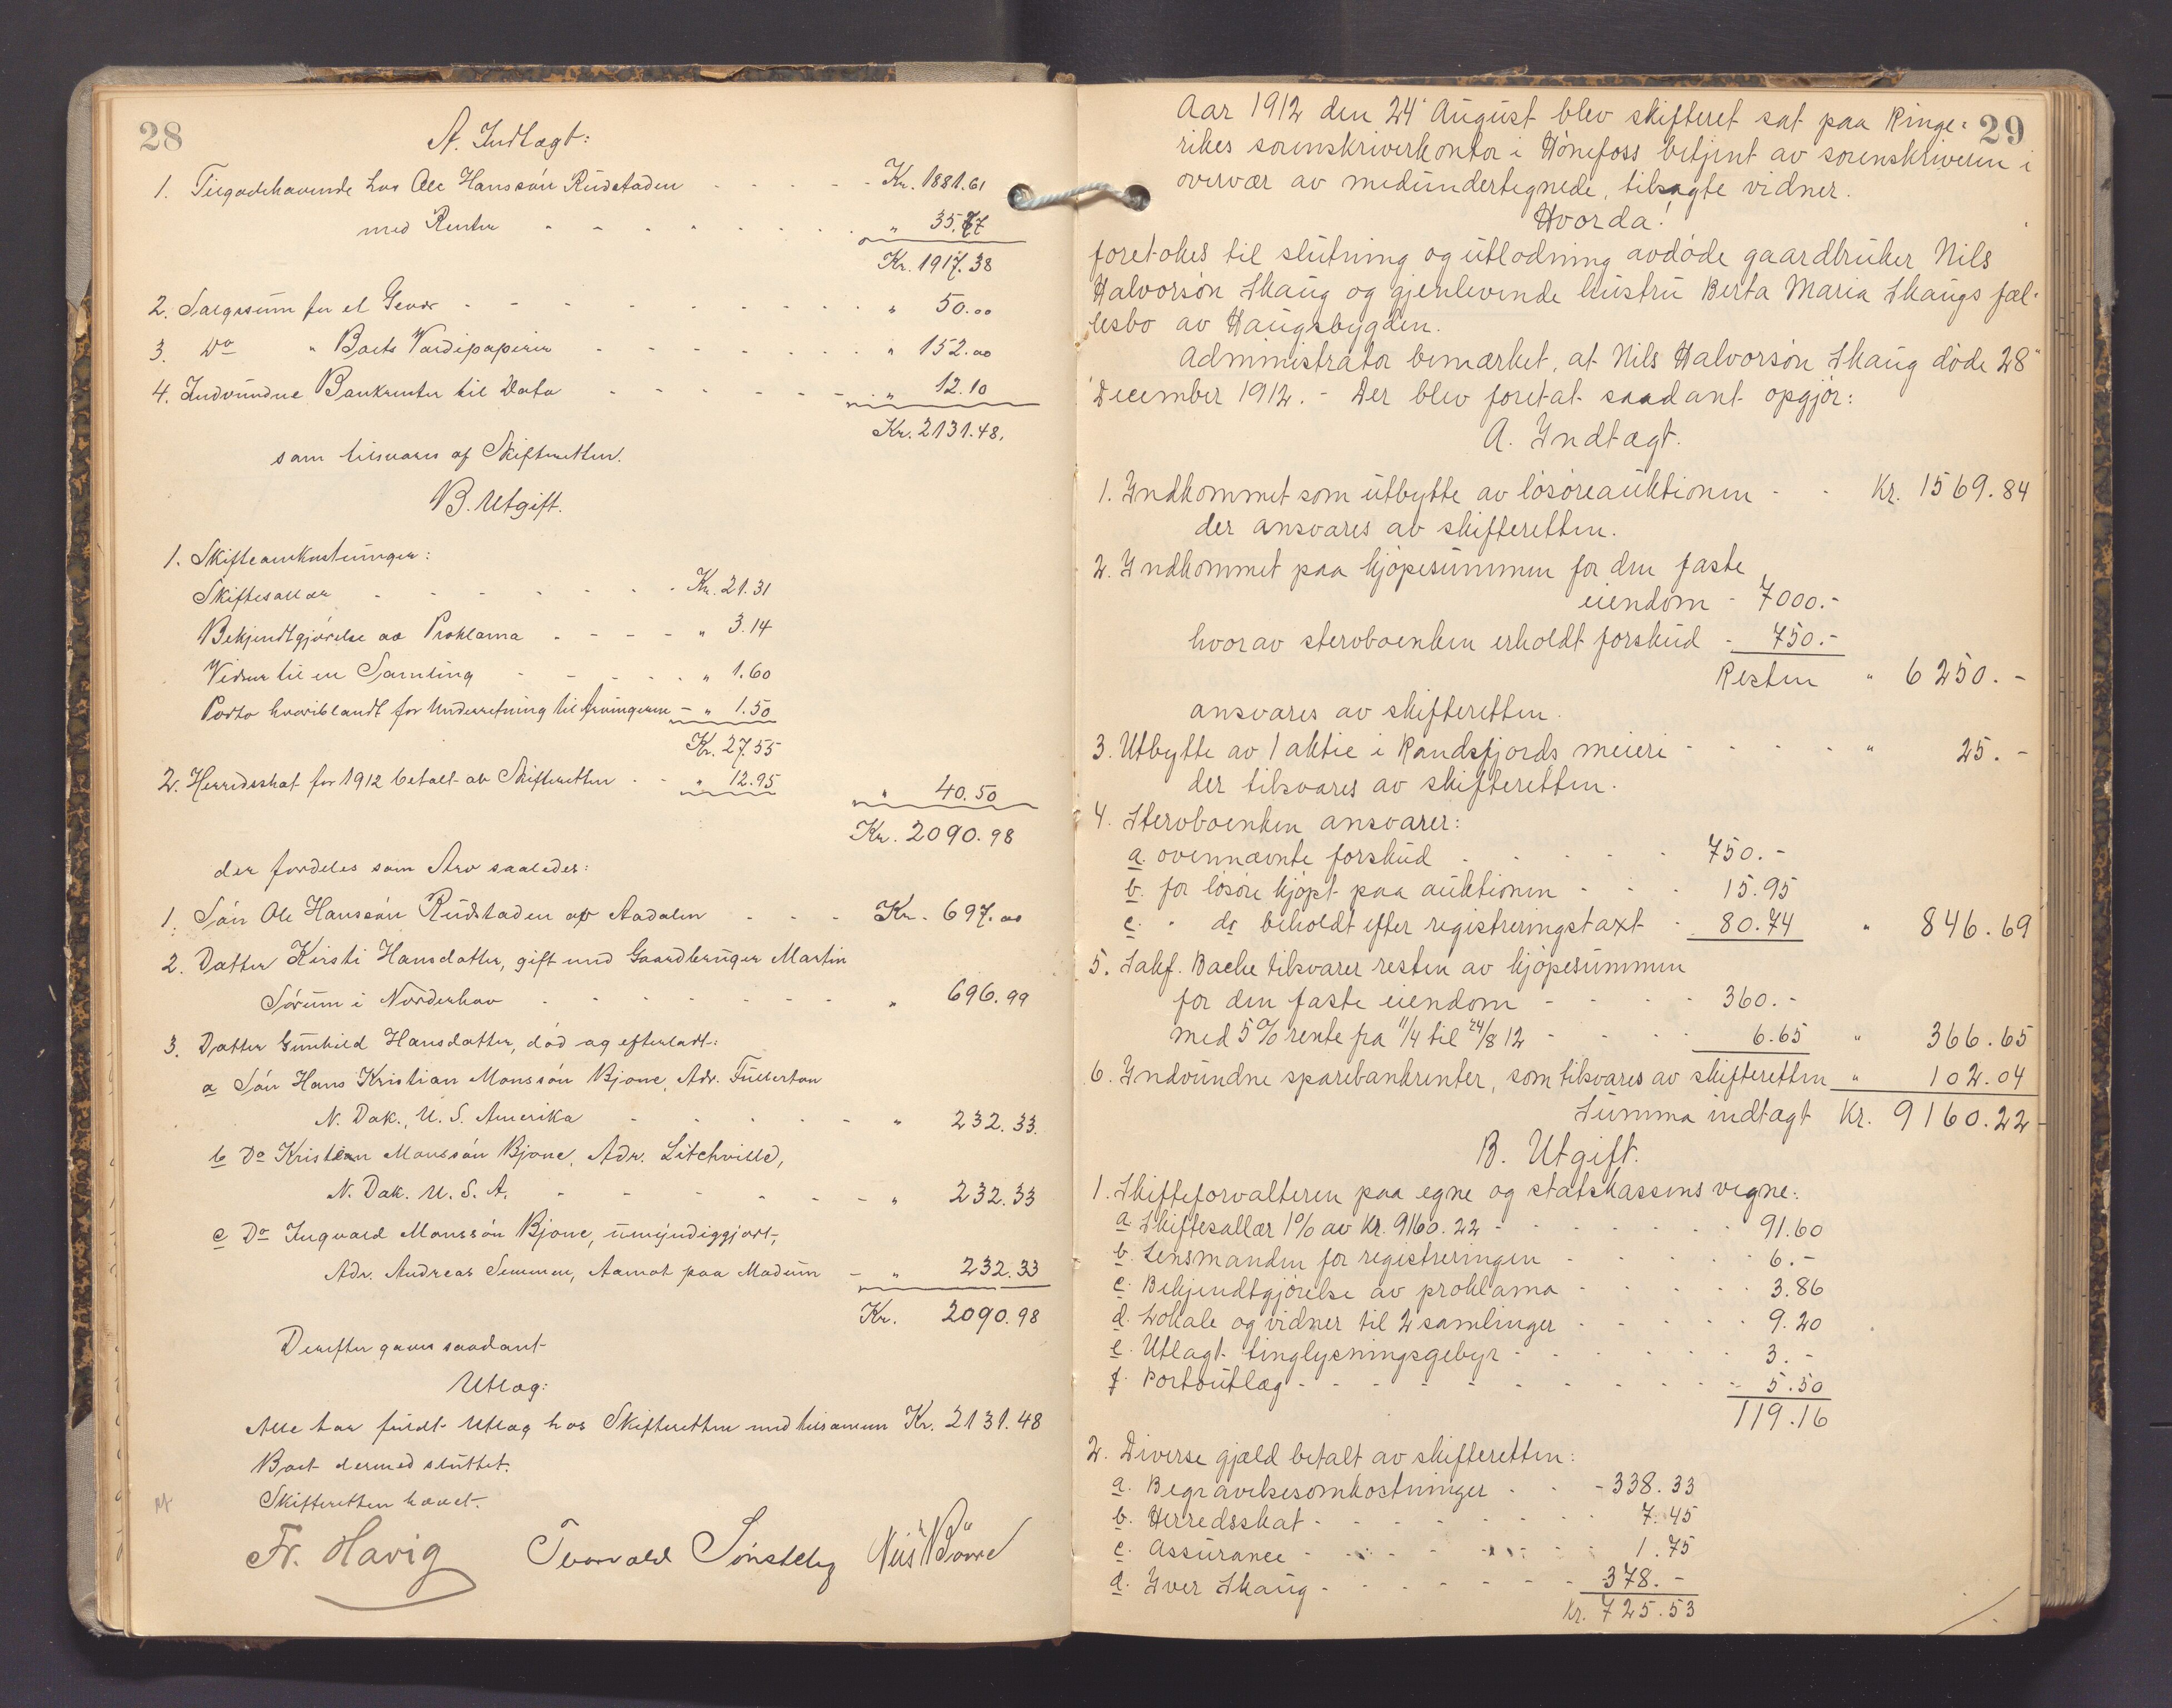 28
A. Indtægt:
1. Tilgodehavende hos Ole Hanssøn Rudstaden - - - - - Kr. 1881.61
med Renter - - - - - - - " 35.77
Kr. 1917.38
2. Salgssum for et Gevær - - - - - - - - " 50.00
3. Do " Boets Værdipapirer - - - - - - " 152.00
4. Indvundne Bankrenter til Dato - - - - - " 12.10
Kr. 2131.48.
som tilsvares af Skifteretten.
B. Utgift.
1. Skifteomkostninger:
Skiftesallær - - - - - - - Kr. 21.31
Bekjendtgjørelse av Proklama - - - - " 3.14
Vidner til en Samling - - - - - " 1.60
Porto hvoriblandt for Underretning til arvingerne - " 1.50
Kr. 27.55
2. Herredsskat for 1912 betalt av Skifteretten - - " 12.95
" 40.50
Kr. 2090.98
der fordeles som Arv saaledes:
1. Søn Ole Hanssøn Rudstaden af Aadalen - - - Kr. 697.00
2. Datter Kirsti Hansdatter, gift med Gaardbruger Martin
Sørum i Norderhov - - - - - - - " 696.99
3. Datter Gunhild Hansdatter, død og efterladt:
a Søn Hans Kristian Monssøn Bjone, Adr. Fullerton
N. Dak., U. S. Amerika - - - - - " 232.33.
b Do Kristian Monssøn Bjone, Adr. Litchville,
N. Dak. U. S. A. - - - - - - " 232.33
c Do Ingvald Monssøn Bjone, umyndiggjort,
Adr. Andreas Semmen, Aamot paa Modum - " 232.33
Kr. 2090.98
Derefter gaves saadant
Utlæg:
Alle har fuldt Utlæg hos Skifteretten med tilsammen Kr. 2131.48
Boet dermed sluttet.
Skifteretten hævet.
Fr. Havig Thorvald Sønsteby Nils
29
Aar 1912 den 24' August blev skifteret sat paa Ringe-
rikes sorenskriverkontor i Hønefoss betjent av sorenskriveren i
overvær av medundertegnede, tilsagte vidner.
Hvorda!
foretokes til slutning og utlodning avdøde gaardbruker Nils
Halvorsøn Skaug og gjenlevende hustru Berta Maria Skaugs fæl-
lesbo av Haugsbygden.
Administrator bemærket, at Nils Halvorsøn Skaug døde 28"
December 1912. - Der blev foretat saadant opgjør:
A. Indtægt.
1. Indkommet som utbytte av løsøreauktionen - - Kr. 1569.84
der ansvares av skifteretten.
2. Indkommet paa kjøpesummen for den faste
eiendom - 7000.-
hvorav stervboenken erholdt forskud - 750.-
Resten " 6250.-
ansvares av skifteretten.
3. Utbytte av 1 aktie i Randsfjords meieri - - - - " 25.-
der tilsvares av skifteretten.
4. Stervboenken ansvarer:
a. ovennævnte forskud - - - - - 750.-
b. for løsøre kjøpt paa auktionen - - - 15.95
c. " do beholdt efter registreringstaxt - 80.74 " 846.69
5. Sakf. Bache tilsvarer resten av kjøpesummen
for den faste eiendom - - - - 360.-
med 5% rente fra 11/4 til 24/8 12 - - - - 6.65 " 366.65
6. Indvundne sparebankrenter, som tilsvares av skifteretten " 102.04
Summa indtægt Kr. 9160.22
B. Utgift.
1. Skifteforvalteren paa egne og statskassens vegne:
a. Skiftesallær 1% av Kr. 9160.22 - - - - - - - 91.60
b. Lensmanden for registreringen - - - - - 6.-
c. Bekjendtgjørelse av proklama - - - - - 3.86
d. Lokale og vidner til 2 samlinger - - - - - 9.20
e. Utlagt tinglysningsgebyr - - - - - - 3.-
f. Portoutlæg - - - - - - - - - - 5.50
119.16
2. Diverse gjæld betalt av skifteretten:
a. Begravelsesomkostninger - - - 338.33
b. Herredsskat - - - - - - - - 7.45
c. Assurance - - - - - - - - 1.75
d. Iver Skaug - - - - - - - 378.-
Kr. 725.53